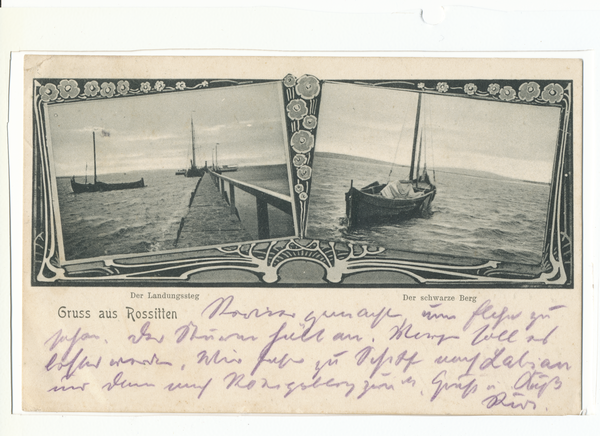 Der Landungssteg
Der schwarze Berg
Gruss aus Rossitten
gemacht, um zu
sehen. Der Sturm hält an. Morgen soll es
besser werden. Wir zu Schiff nach Labiau
und dann nach Königsberg zurück. Gruß u. Kuß